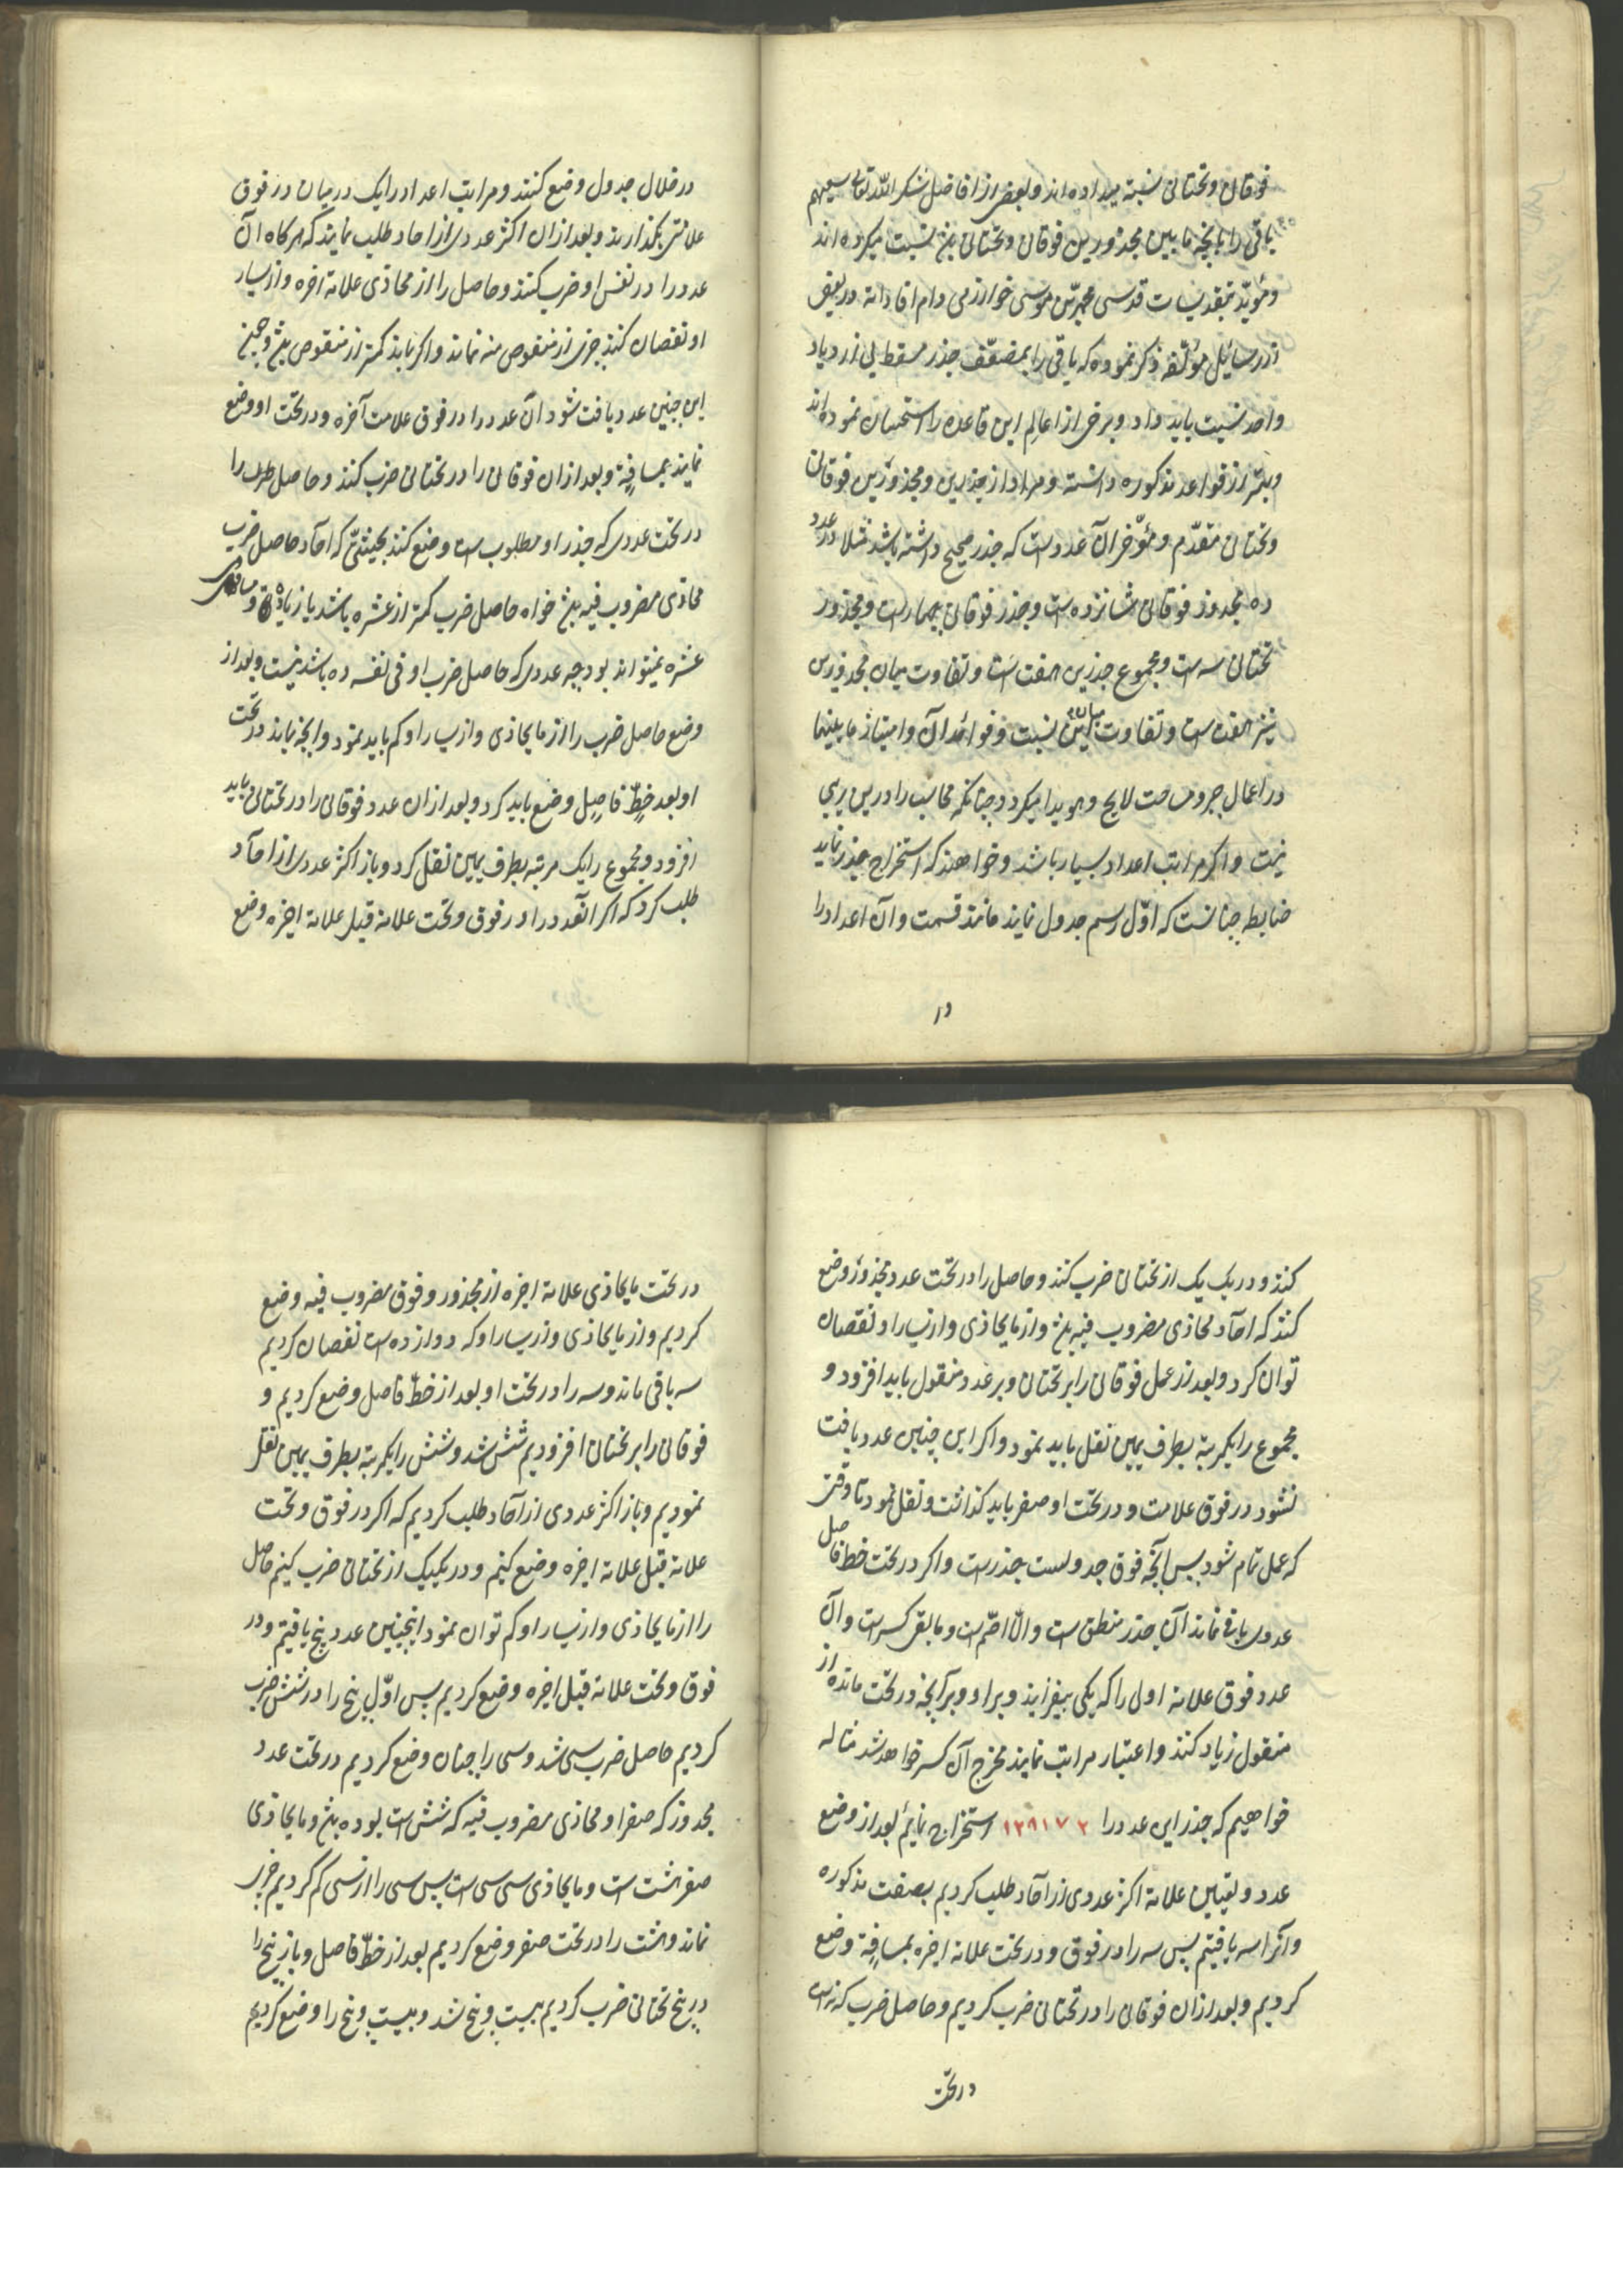 فوقانی و تحتانی نسبة میداده اند و بعضی از افاضل شکر الله تعالی سعیهم
باقی را بآنچه مابین مجذورین فوقانی و تحتانی بلغ نسبت میکرده اند
و مؤید بتقدیسات قدسی محمد بن موسی خوارزمی دام افاداته در بعضی
از رسایل مؤلفه ذکر نموده که باقی را بمضعّف جذر مسقط بی ازدیاد
واحد نسبت باید داد و برخی از اعالم این قاعده را استحسان نموده اند
و بهتر از قواعد مذکوره داشته و مراد از جذرین و مجذورین فوقانی
و تحتانی مقدّم و مؤخر آن عددست که جذر صحیح داشته باشد مثلا در عدد
ده مجذور فوقانی شانزده است و جذر فوقانی چهارست و مجذور
تحتانی سه است و مجموع جذرین هفت است و تفاوت میان مجذورین
نیز هفت است و تفاوت میان این نسبت و فوائد آن و امتیاز ما بینهما
در اعمال جبر و مساحت لایح و هویدا میکردد چنانکه محاسب را درین ریبی
نیست و اکر مراتب اعداد بسیار باشد و خواهند که استخراج جذر نمایند
ضابطه چنانست که اوّل رسم جدول نمایند مانند قسمت و آن اعداد را
در
در خلال جدول وضع کنند و مراتب اعداد را یک درمیان در فوق
علامتی بکذارند و بعد از ان اکثر عددی از احاد طلب نمایند که هرکاه آن
عدد را در نفس او ضرب کنند و حاصل را از محاذی علامة اخره و از یسار
او نقصان کنند چیزی از منقوص منه نماند و اکر بماند کمتر از منقوص بلغ و چون
این چنین عدد یافت شود آن عدد را در فوق علامت آخره و در تحت او وضع
نمایند بمسافة و بعد از ان فوقانی را در تحتانی ضرب کنند و حاصل ضرب را
در تحت عددی که جذر او مطلوب است وضع کنند بحیثیتی که احاد حاصل ضرب
محاذی مضروب فیه بلغ خواه حاصل ضرب کمتر از عشره باشد یا زیاده و مساوی
عشره نمیتواند بود چه عددی که حاصل ضرب او فی نفسه ده باشد نیست و بعد از
وضع حاصل ضرب را از ما یحاذی و از یسار او کم باید نمود و آنچه بماند در تحت
او بعد خطّ فاصل وضع باید کرد و بعد از ان عدد فوقانی را در تحتانی باید
افزود و مجموع را یک مرتبه بطرف یمین نقل کرد و باز اکثر عددی از احاد
طلب کرد که اکر انعدد را در فوق و تحت علامة قبل علامة اخره وضع
کنند و در یک یک از تحتانی ضرب کنند و حاصل را در تحت عدد مجذور وضع
کنند که احاد محاذی مضروب فیه بلغ و از ما یحاذی و از یسار او نقصان
توان کرد و بعد از عمل فوقانی را بر تحتانی و بر عدد منقول باید افزود و
مجموع را یکمرتبه بطرف یمین نقل باید نمود و اکر این چنین عدد یافت
نشود در فوق علامت و در تحت او صفر باید کذاشت و نقل نمود تا وقتی
که عمل تمام شود پس آنچه فوق جدولست جذرست و اکر در تحت خط فاصل
عددی باقی نماند آن جذر منطق است و الا اصمّ است و ما بقی کسرست و آن
عدد فوق علامة اولی را که یکی بیفزایند و بر او و بر آنچه در تحت مانده از
منقول زیاد کنند و اعتبار مراتب نمایند مخرج آن کسر خواهد شد مثاله
خواهیم که جذر این عدد را ۱۲۹۱۷۲ استخراج نمائیم بعد از وضع
عدد و تعیین علامة اکثر عددی از احاد طلب کردیم بصفت مذکوره
و آنرا سه یافتیم پس سه را در فوق و در تحت علامة اخره بمسافة وضع
کردیم و بعد از ان فوقانی را در تحتانی ضرب کردیم و حاصل ضرب که نه است
در تحت
در تحت ما یحاذی علامة اخره از مجذور و فوق مضروب فیه وضع
کردیم و از ما یحاذی و از یسار او که دوازده است نقصان کردیم
سه باقی ماند و سه را در تحت او بعد از خطّ فاصل وضع کردیم و
فوقانی را بر تحتانی افزودیم شش شد و شش را یکمرتبه بطرف یمین نقل
نمودیم و باز اکثر عددی از احاد طلب کردیم که اکر در فوق و تحت
علامة قبل علامة اخره وضع کنیم و در یکیک از تحتانی ضرب کنیم حاصل
را از ما یحاذی و از یسار او کم توان نمود اینچنین عدد پنج یافتیم و در
فوق و تحت علامة قبل اخره وضع کردیم پس اوّل پنج را در شش ضرب
کردیم حاصل ضرب سی شد و سی را چنان وضع کردیم در تحت عدد
مجذور که صفر او محاذی مضروب فیه که شش است بوده بلغ و ما یحاذی
صفر هشت است و ما یحاذی سی سی است پس سی را از سی کم کردیم چیزی
نماند و هشت را در تحت صفر وضع کردیم بعد از خطّ فاصل و باز پنج را
در پنج تحتانی ضرب کردیم بیست و پنج شد و بیست و پنج را وضع کردیم